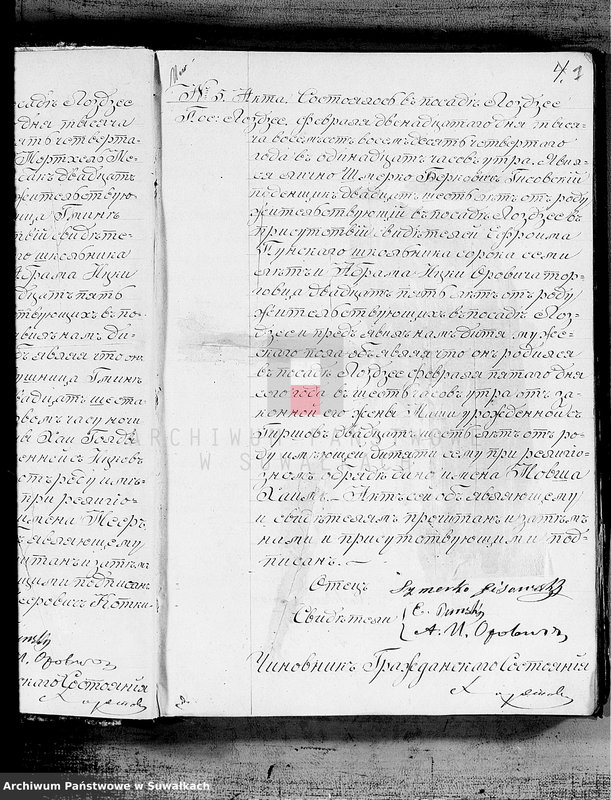 посадѣ Лоздзее
дня тысяча
четверта-
двадцать
жительствую
школьника
Абрама Ицки
дцать пять
ствующихъ въ по-
намъ ди-
двадцать шести-
часу ночи
отъ роду имъ-
при религіо-
имена Мееръ
ъявляющему
подписанъ
Punskiy
И. Оровичъ
скаго Состоянія
4.
№ 5. Акта. Состоялось въ посадѣ Лоздзее
Пос: Лоздзее. Февраля двенадцатаго дня тыся-
ча восемьсотъ восемьдесятъ четвертаго
года въ одинадцать часовъ утра. Явил-
ся лично Шмерко Берковичъ Гисовскій
поденщикъ двадцать шесть лѣтъ отъ роду
жительствующій въ посадѣ Лоздзее въ
присутствіи свидѣтелей Ефроима
Пунскаго школьника сорока семи
лѣтъ и Абрама Ицки Оровича тор-
говца двадцать пять лѣтъ отъ роду
жительствующихъ въ посадѣ Лоз-
дзее и предъявилъ намъ дитя муже-
скаго пола объявляя что онъ родился
въ посадѣ Лоздзее февраля пятаго дня
сего года въ шесть часовъ утра отъ за-
конной его жены Маши урожденной въ
Гиршовъ двадцать шесть лѣтъ отъ ро-
ду имѣющей дитяти сему при религіо-
зномъ обрядѣ дано имена Мовша
Хаимъ. — Актъ сей объявляющему
и свидѣтелямъ прочитанъ и затѣмъ
нами и присутствующими под-
писанъ. —
Отецъ Szmerko Gisowski
Свидѣтели { E. Punskiy
А. И. Оровичъ
Чиновникъ Гражданскаго Состоянія
ARCHIWUM PAŃSTWOWE
W SUWAŁKACH
Archiwum Państwowe w Suwałkach